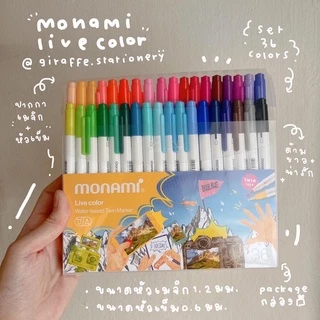 monami
live color
@ giraffe.stationery
{ set
36
colors }
ปากกา
เมจิก
หัวเข็ม
ด้าม
ขาว
น่ารัก
monami
Live color
Water based Twin Marker
package
กล่อง
ขนาดหัวเมจิก 1.2 มม.
ขนาดหัวเข็ม 0.6 มม.